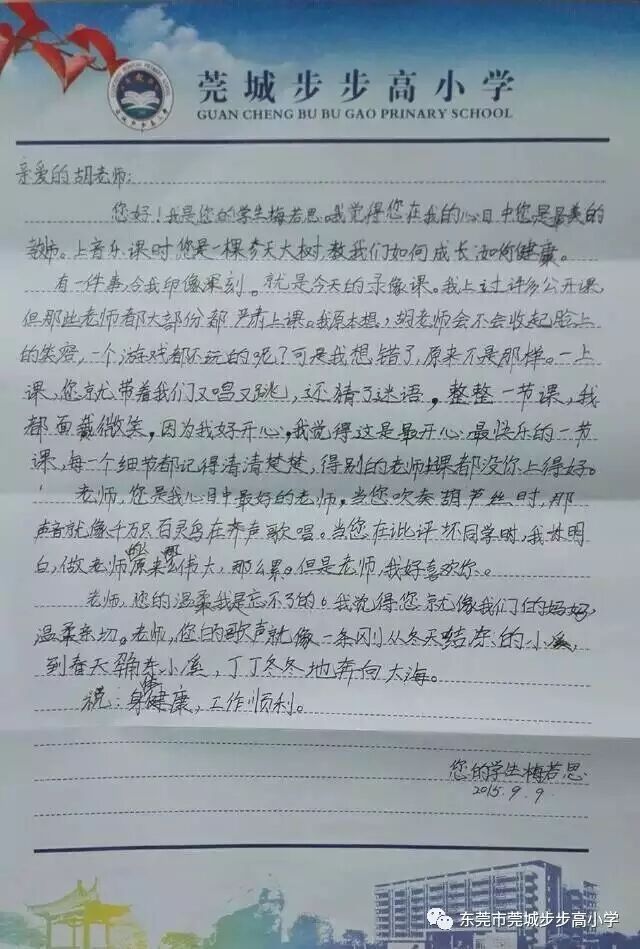 莞城步步高小学
GUAN CHENG BU BU GAO PRINARY SCHOOL
亲爱的胡老师：
您好！我是您的学生梅若思。我觉得您在我的心目中您是最美的
教师。上音乐课时您是一棵参天大树教我们如何成长如何健康。
有一件事令我印像深刻。就是今天的录像课。我上过许多公开课,
但那些老师都大部份都严肃上课。我原本想，胡老师会不会收起脸上
的笑容，一个游戏都不玩的呢？可是我想错了，原来不是那样。一上
课，您就带着我们又唱又跳，还猜了迷语，整整一节课，我
都面戴微笑，因为我好开心，我觉得这是最开心最快乐的一节
课，每一个细节都记得清清楚楚，得别的老师上课都没你上得好。
老师，您是我心目中最好的老师，当您吹奏葫芦丝时，那
声音就像千万只百灵鸟在齐声歌唱。当您在批评坏同学时，我才明
白，做老师原来那么伟大，那么累。但是老师，我好喜欢你。
老师，您的温柔我是忘不了的。我觉得您就像我们的妈妈，
温柔亲切。老师，您的歌声就像一条刚从冬天结冻的小溪，
到春天解冻小溪，丁丁冬冬地奔向大海。
祝：身体健康，工作顺利。
您的学生梅若思
2015.9.9
东莞市莞城步步高小学